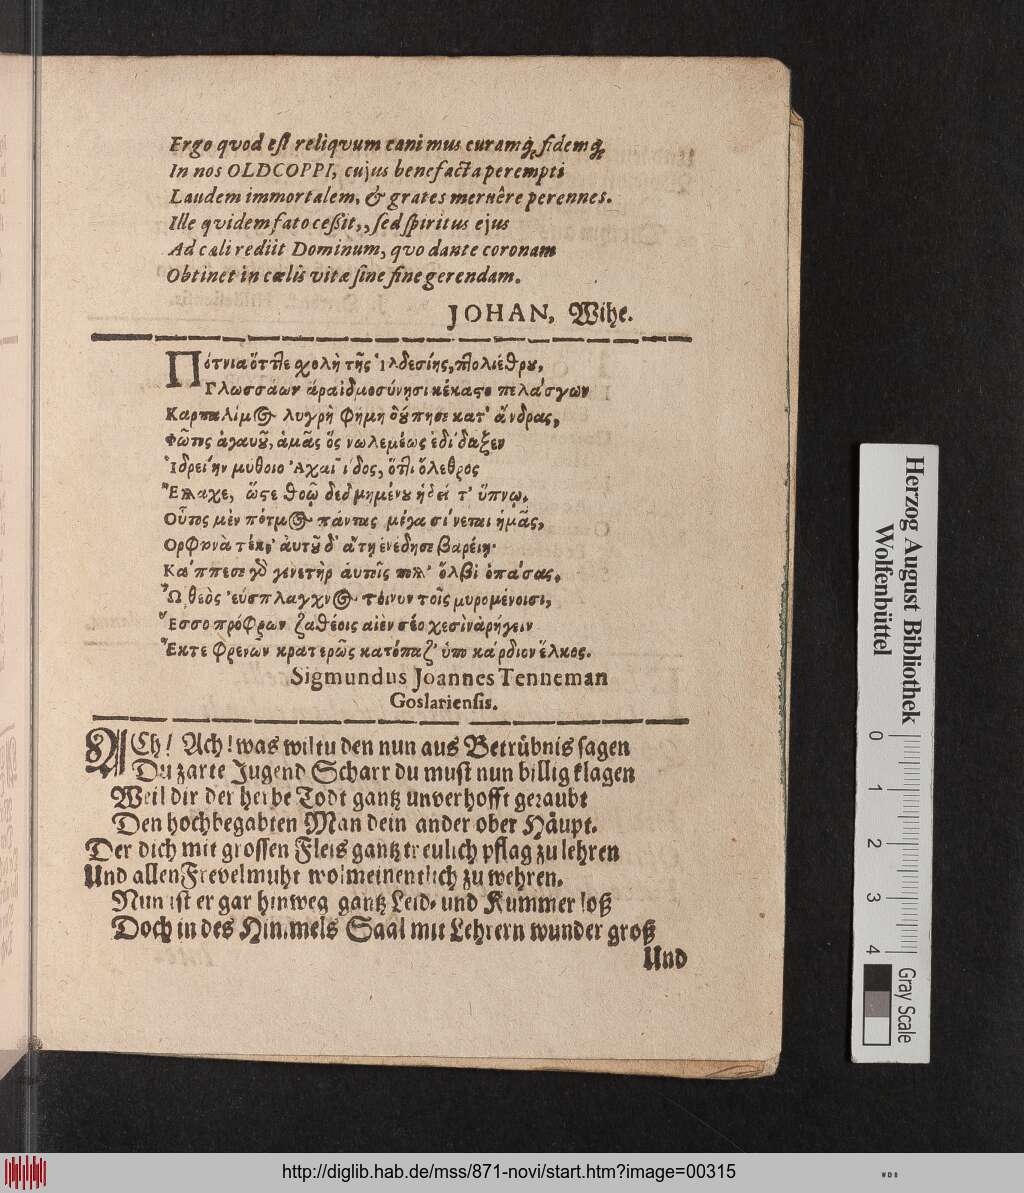 Ergo qvod est reliqvum canimus curamq́; fidemq́;
In nos OLDCOPPI, cujus benefacta perempti
Laudem immortalem, & grates meruêre perennes.
Ille qvidem fato ceßit,, sed spiritus ejus
Ad cæli rediit Dominum, qvo dante coronam
Obtinet in cœlis vitæ sine fine gerendam.
JOHAN, Wihe.
Πότνια ὅττιε χολὴ τῆς Ἱλδεσίης, πτολιέθρου,
Γλωσσάων ἀραἰδμοσύνησι κέκαστο πελάσγων
Καρπαλίμος λυγρὴ φήμη δούπησε κατ' ἄνδρας,
Φῶτος ἀγαυοῦ, ἁμᾶς ὅς νωλεμέως ἐδίδαξεν
Ἰδρείην μύθοιο Ἀχαΐίδος, ὅττι ὄλεθρος
Ἔλλαχε, ὥστε θοῷ δεδμημένου ἡδεῖ τ' ὕπνῳ.
Οὗτος μὲν πότμος πάντας μέγα σίνεται ἡμᾶς,
Ορφανὰ τέκν' ἀυτοῦ δ' ἄτη ἐνέδησε βαρείῃ·
Κάππεσε γὸ γενετὴρ ἀυτοῖς πολλ' ὄλβι' ὀπάσας,
Ὦ θεὸς εὔσπλαγχνος τοίνυν τοῖς μυρομένοισι,
Ἔσσο πρόφρων ζαθέοις αἰὲν σέο χεσὶν ἀρήγειν
Ἔκτε φρενῶν κρατερῶς κατόπαζ' ὑπο κάρδιον ἕλκος.
Sigmundus Joannes Tenneman
Goslariensis.
ACh! Ach! was wiltu den nun aus Betrübnis sagen
Du zarte Jugend Scharr du must nun billig klagen
Weil dir der herbe Todt gantz unverhofft geraubt
Den hochbegabten Man dein ander ober Häupt.
Der dich mit grossen Fleis gantz treulich pflag zu lehren
Und allen Frevelmuht wolmeinentlich zu wehren.
Nun ist er gar hinweg gantz Leid- und Kummer loß
Doch in des Himmels Saal mit Lehrern wunder groß
Und
Herzog August Bibliothek
Wolfenbüttel
0 1 2 3 4
Gray Scale
http://diglib.hab.de/mss/871-novi/start.htm?image=00315